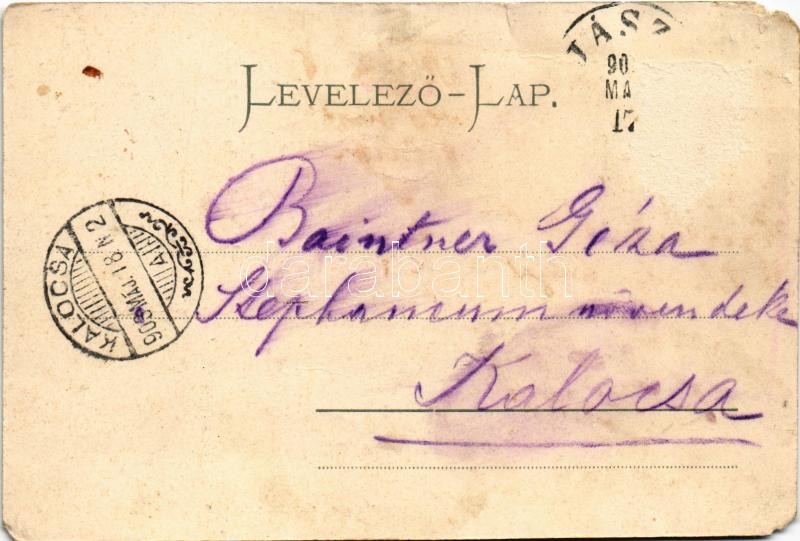 JÁSZ
90
MA
17
LEVELEZŐ-LAP.
Baintner Géza
Stephaneum növendéke
Kalocsa
KALOCSA
903 MÁJ. 18 N 2
darabanth